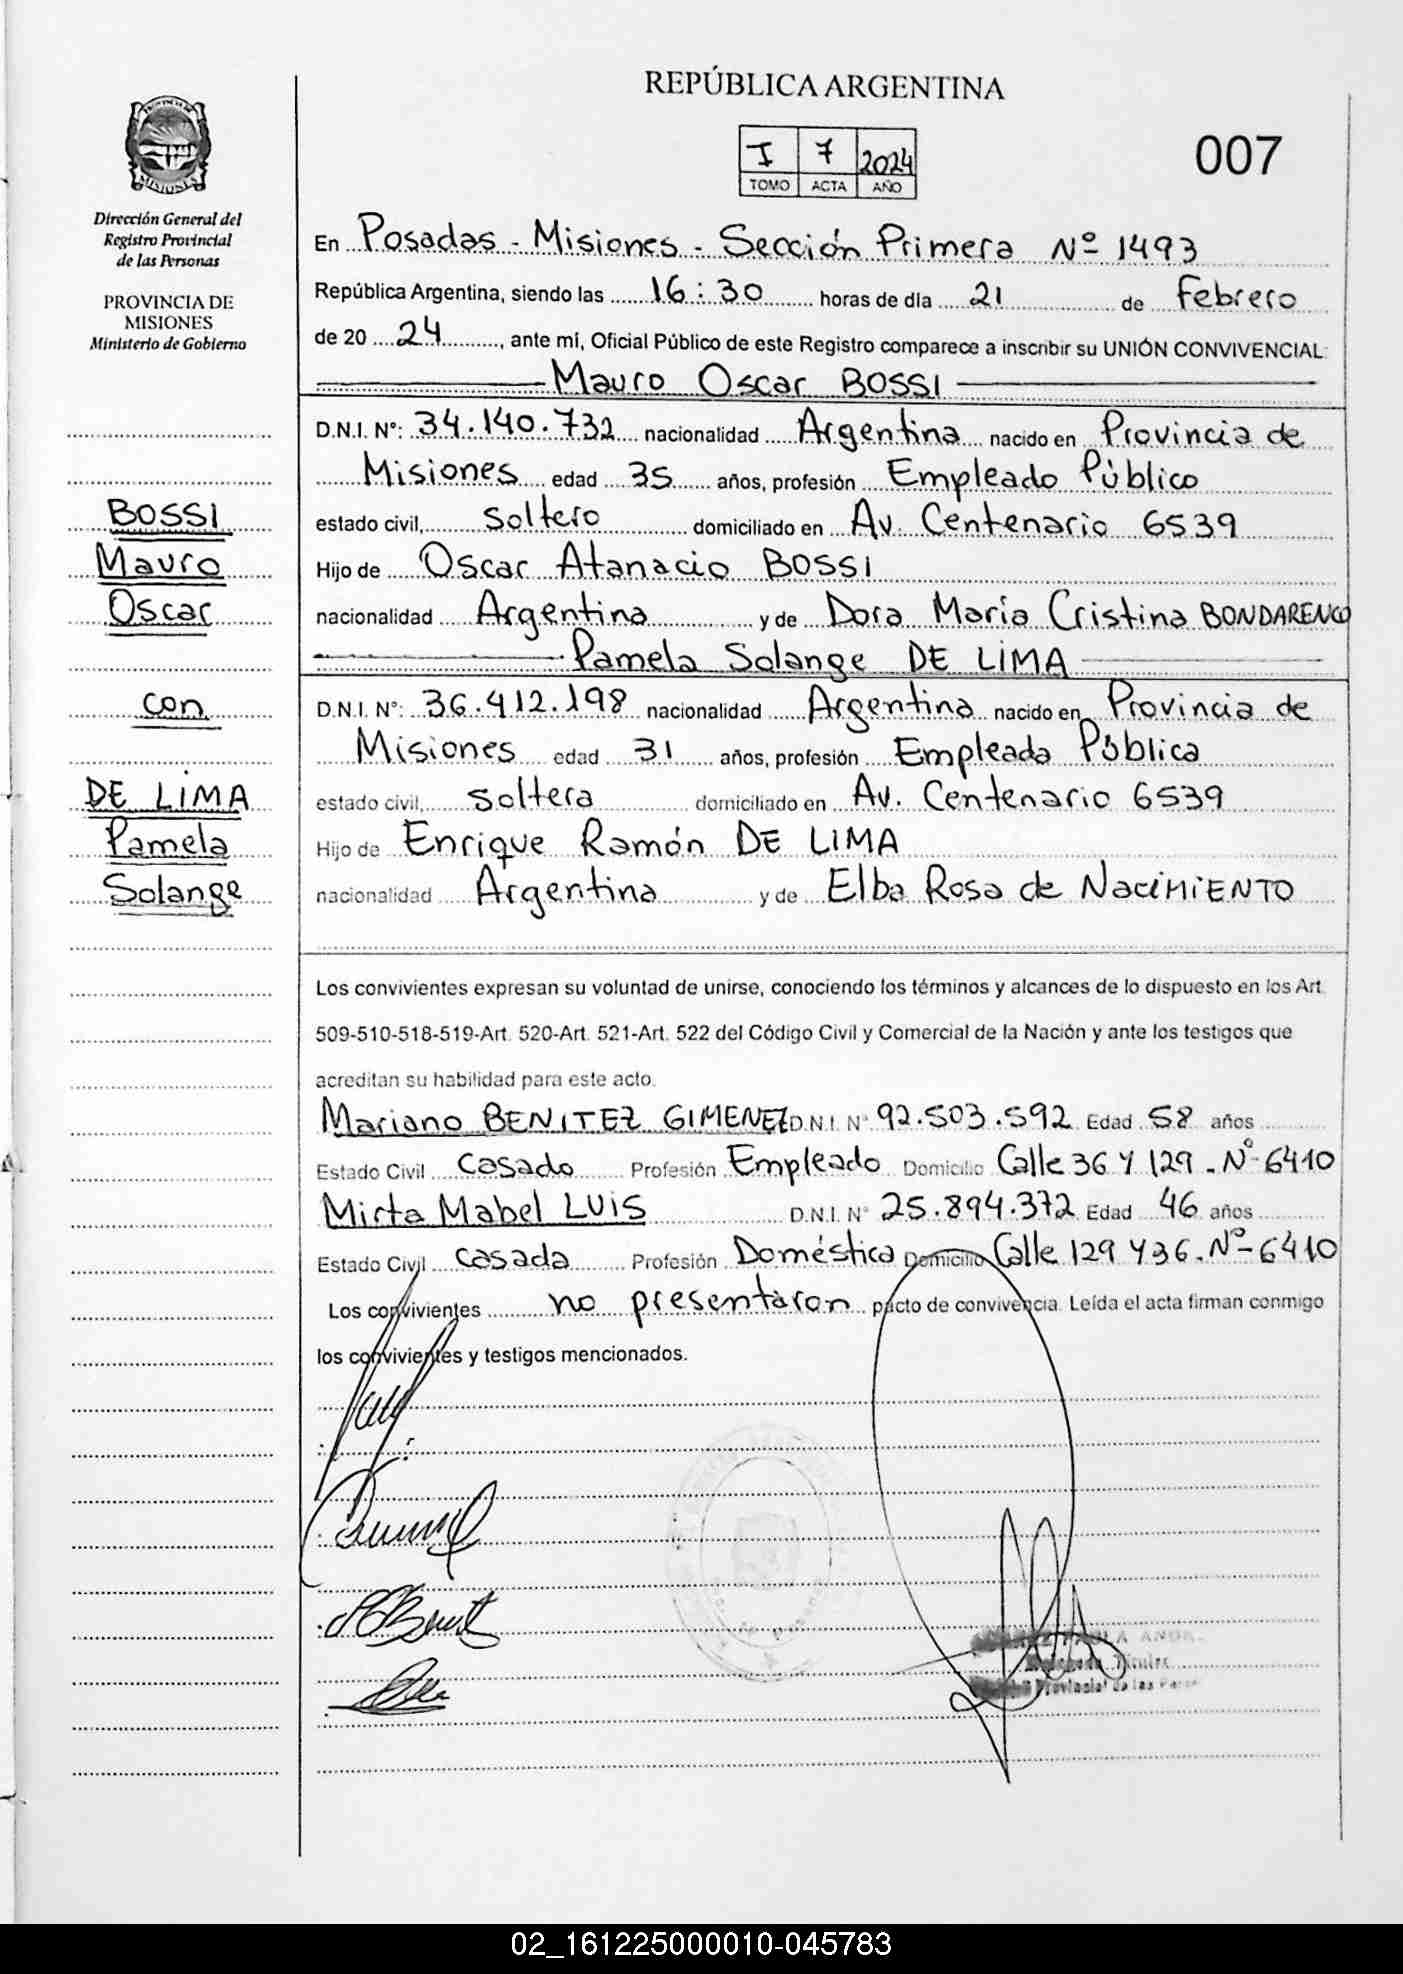 REPÚBLICA ARGENTINA
PROVINCIA DE
MISIONES
I 7 2024
TOMO ACTA AÑO
007
Dirección General del
Registro Provincial
de las Personas
PROVINCIA DE
MISIONES
Ministerio de Gobierno
En Posadas - Misiones - Sección Primera Nº 1493
República Argentina, siendo las 16:30 horas de día 21 de Febrero
de 20 24, ante mí, Oficial Público de este Registro comparece a inscribir su UNIÓN CONVIVENCIAL:
Mauro Oscar BOSSI
D.N.I. N°: 34.140.732 nacionalidad Argentina nacido en Provincia de
Misiones edad 35 años, profesión Empleado Público
estado civil, soltero domiciliado en Av. Centenario 6539
Hijo de Oscar Atanacio BOSSI
nacionalidad Argentina y de Dora María Cristina BONDARENCO
Pamela Solange DE LIMA
D.N.I. N°: 36.412.198 nacionalidad Argentina nacido en Provincia de
Misiones edad 31 años, profesión Empleada Pública
estado civil, soltera domiciliado en Av. Centenario 6539
Hijo de Enrique Ramón DE LIMA
nacionalidad Argentina y de Elba Rosa de NaciMiENTO
BOSSI
Mauro
Oscar
con
DE LIMA
Pamela
Solange
Los convivientes expresan su voluntad de unirse, conociendo los términos y alcances de lo dispuesto en los Art.
509-510-518-519-Art. 520-Art. 521-Art. 522 del Código Civil y Comercial de la Nación y ante los testigos que
acreditan su habilidad para este acto.
Mariano BENITEZ GIMENEZ D.N.I. N° 92.503.592 Edad 58 años
Estado Civil Casado Profesión Empleado Domicilio Calle 36 y 129 - Nº 6410
Mirta Mabel LUIS D.N.I. N° 25.894.372 Edad 46 años
Estado Civil casada Profesión Doméstica Domicilio Calle 129 y 36. Nº- 6410
Los convivientes no presentaron pacto de convivencia. Leída el acta firman conmigo
los convivientes y testigos mencionados.
PAOLA
Titular
Provincial de las
02_161225000010-045783